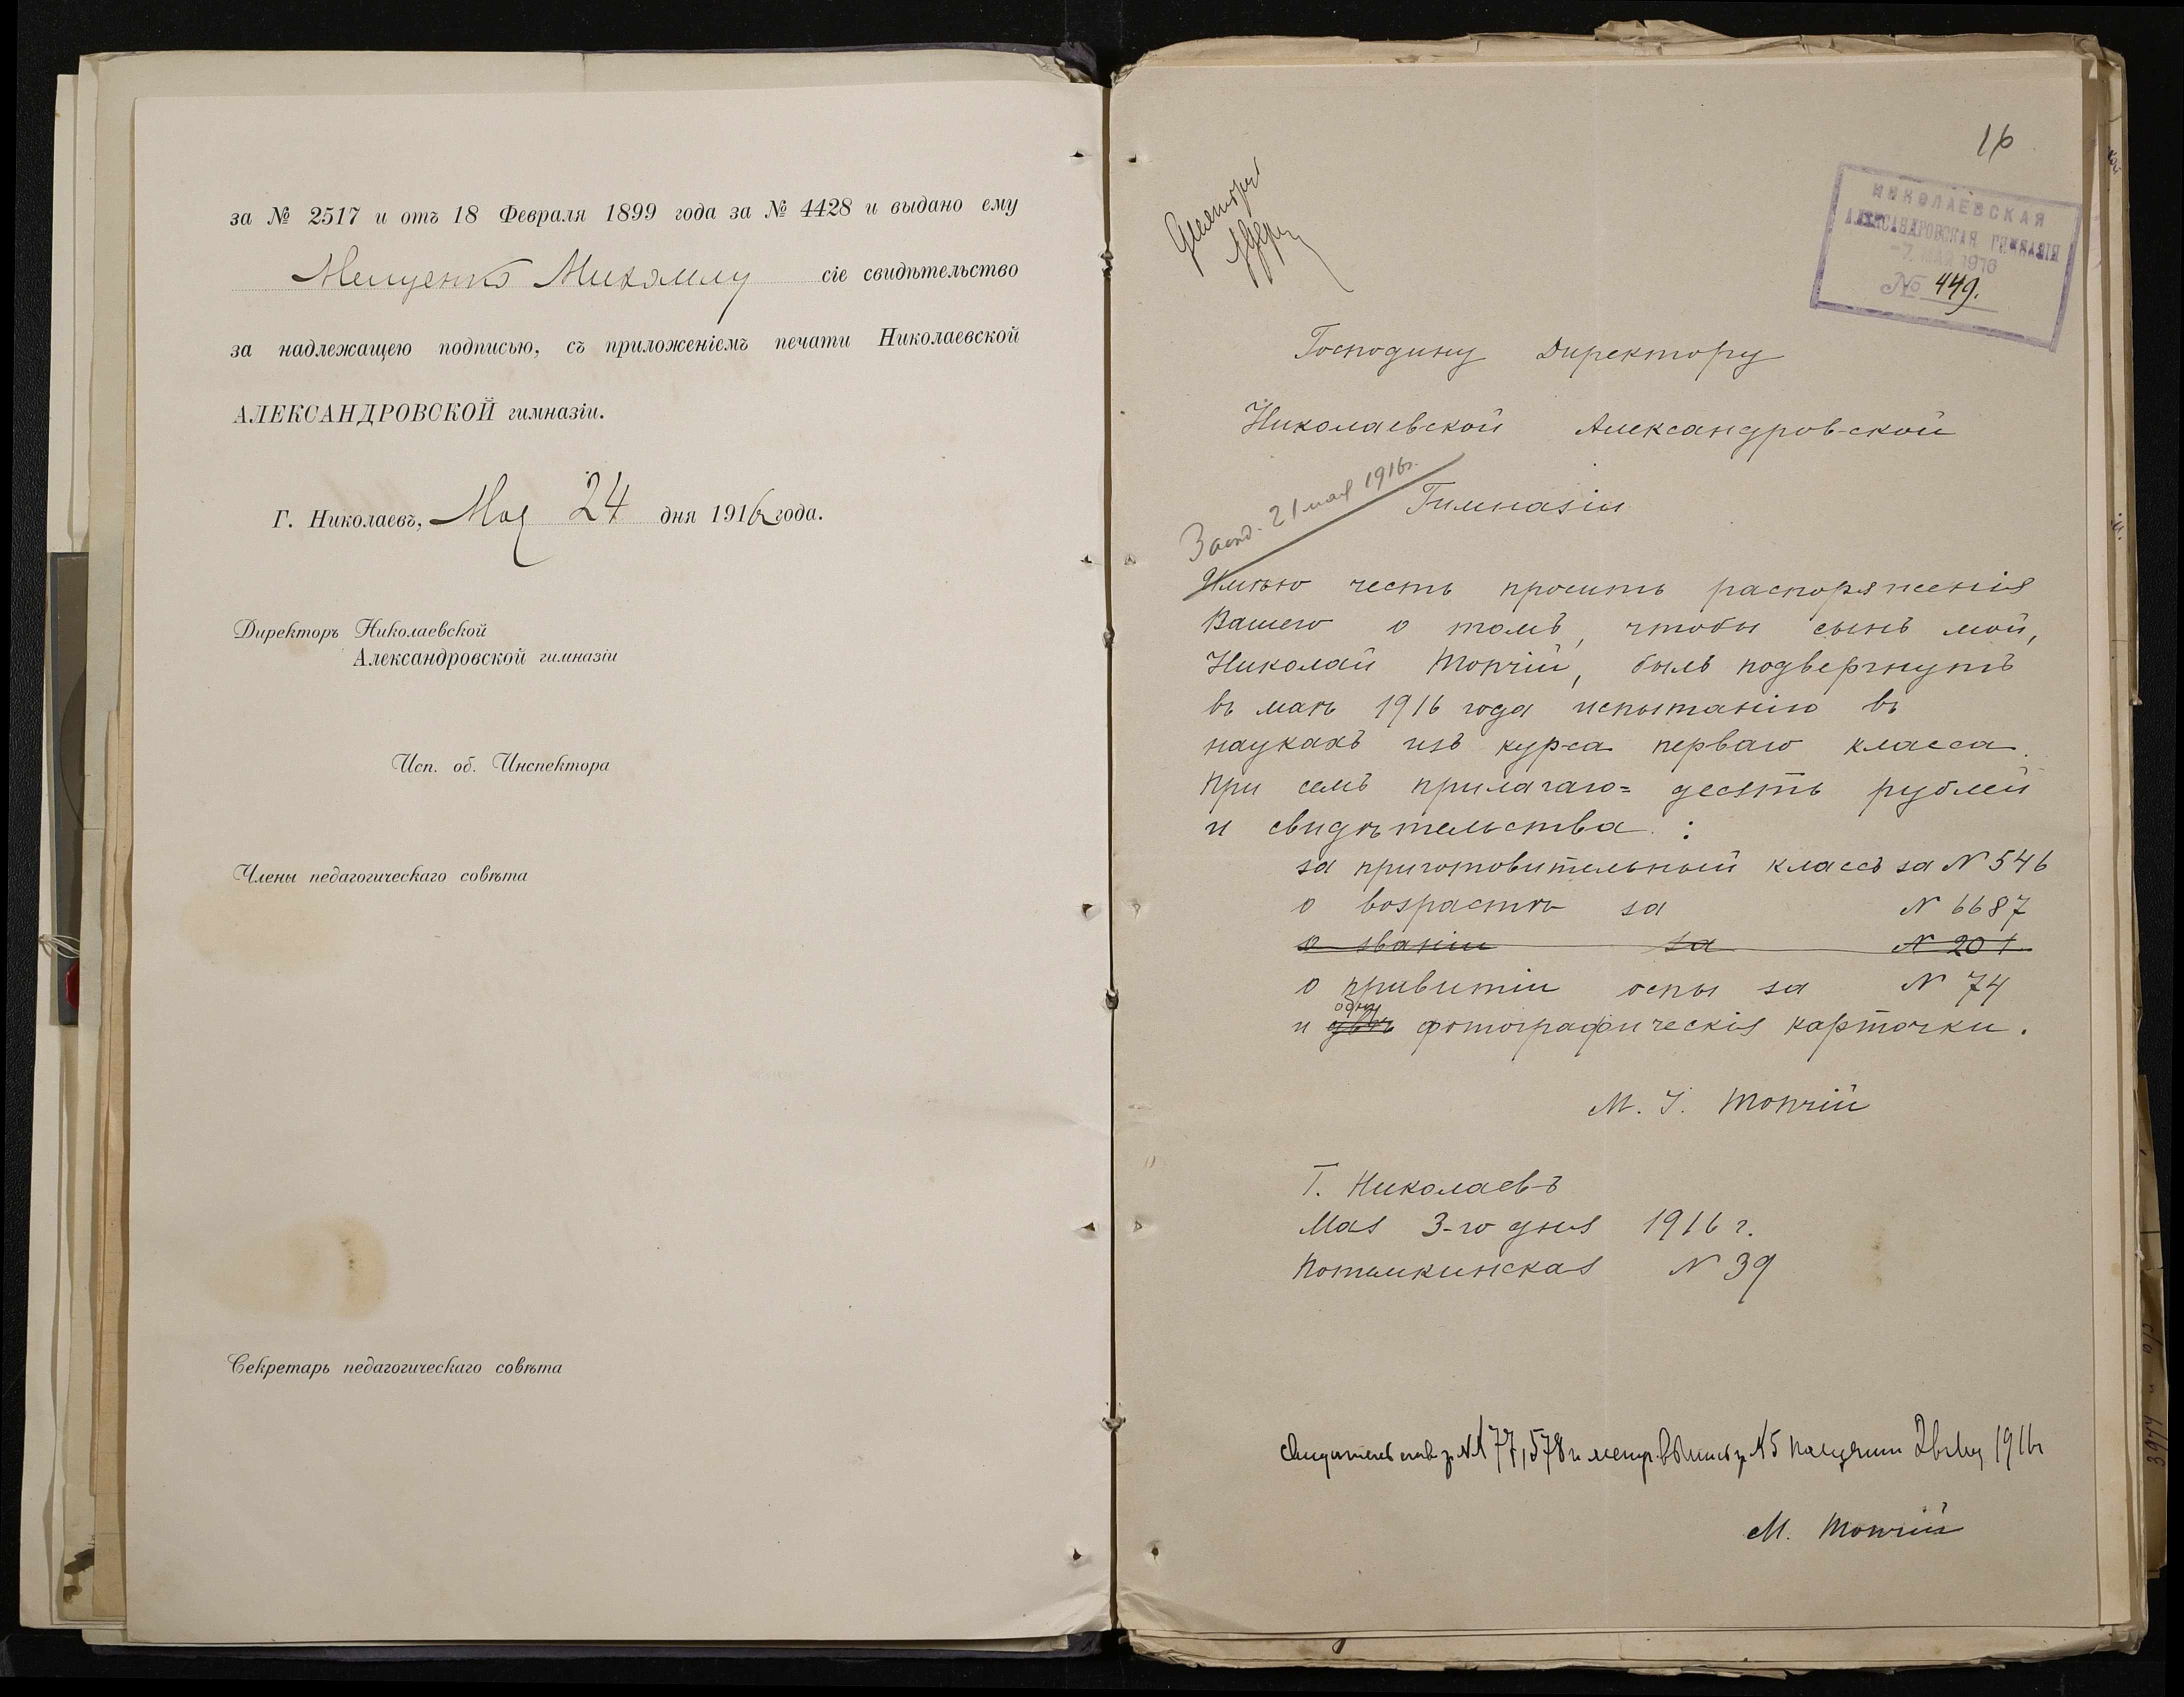 за № 2517 и отъ 18 Февраля 1899 года за № 4428 и выдано ему
Мещенко Михаилу сіе свидѣтельство
за надлежащею подписью, съ приложеніемъ печати Николаевской
АЛЕКСАНДРОВСКОЙ гимназіи.
Г. Николаевъ, Мая 24 дня 1916 года.
Директоръ Николаевской
Александровской гимназіи
Исп. об. Инспектора
Члены педагогическаго совѣта
Секретарь педагогическаго совѣта
16
НИКОЛАЕВСКАЯ
АЛЕКСАНДРОВСКАЯ ГИМНАЗІЯ
-7 МАЯ 1916
№ 449.
Господину Директору
Николаевской Александровской
21 мая 1916г.
Гимназіи
Имѣю честь просить распоряженія
Вашего о томъ, чтобы сынъ мой,
Николай Топчій, былъ подвергнутъ
въ маѣ 1916 года испытанію въ
наукахъ изъ курса перваго класса.
При семъ прилагаю= десять рублей
и свидѣтельства :
за приготовительный классъ за N 546
о возрастѣ за N 6687
о званіи за N 201
о привитіи оспы за N 74
одну
и двѣ фотографическія карточки.
М. І. Топчій
Г. Николаевъ
Мая 3-го дня 1916 г.
Потемкинская N 39
177, 578 и метр. N 5 получилъ 1916г
М. Топчій